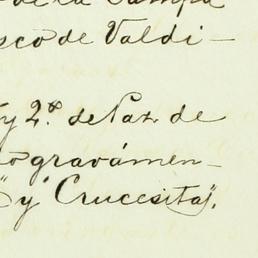 de la Pampa
sco de Valdi-
y 2.º de Paz de
o gravámen-
" y " Crucesita",